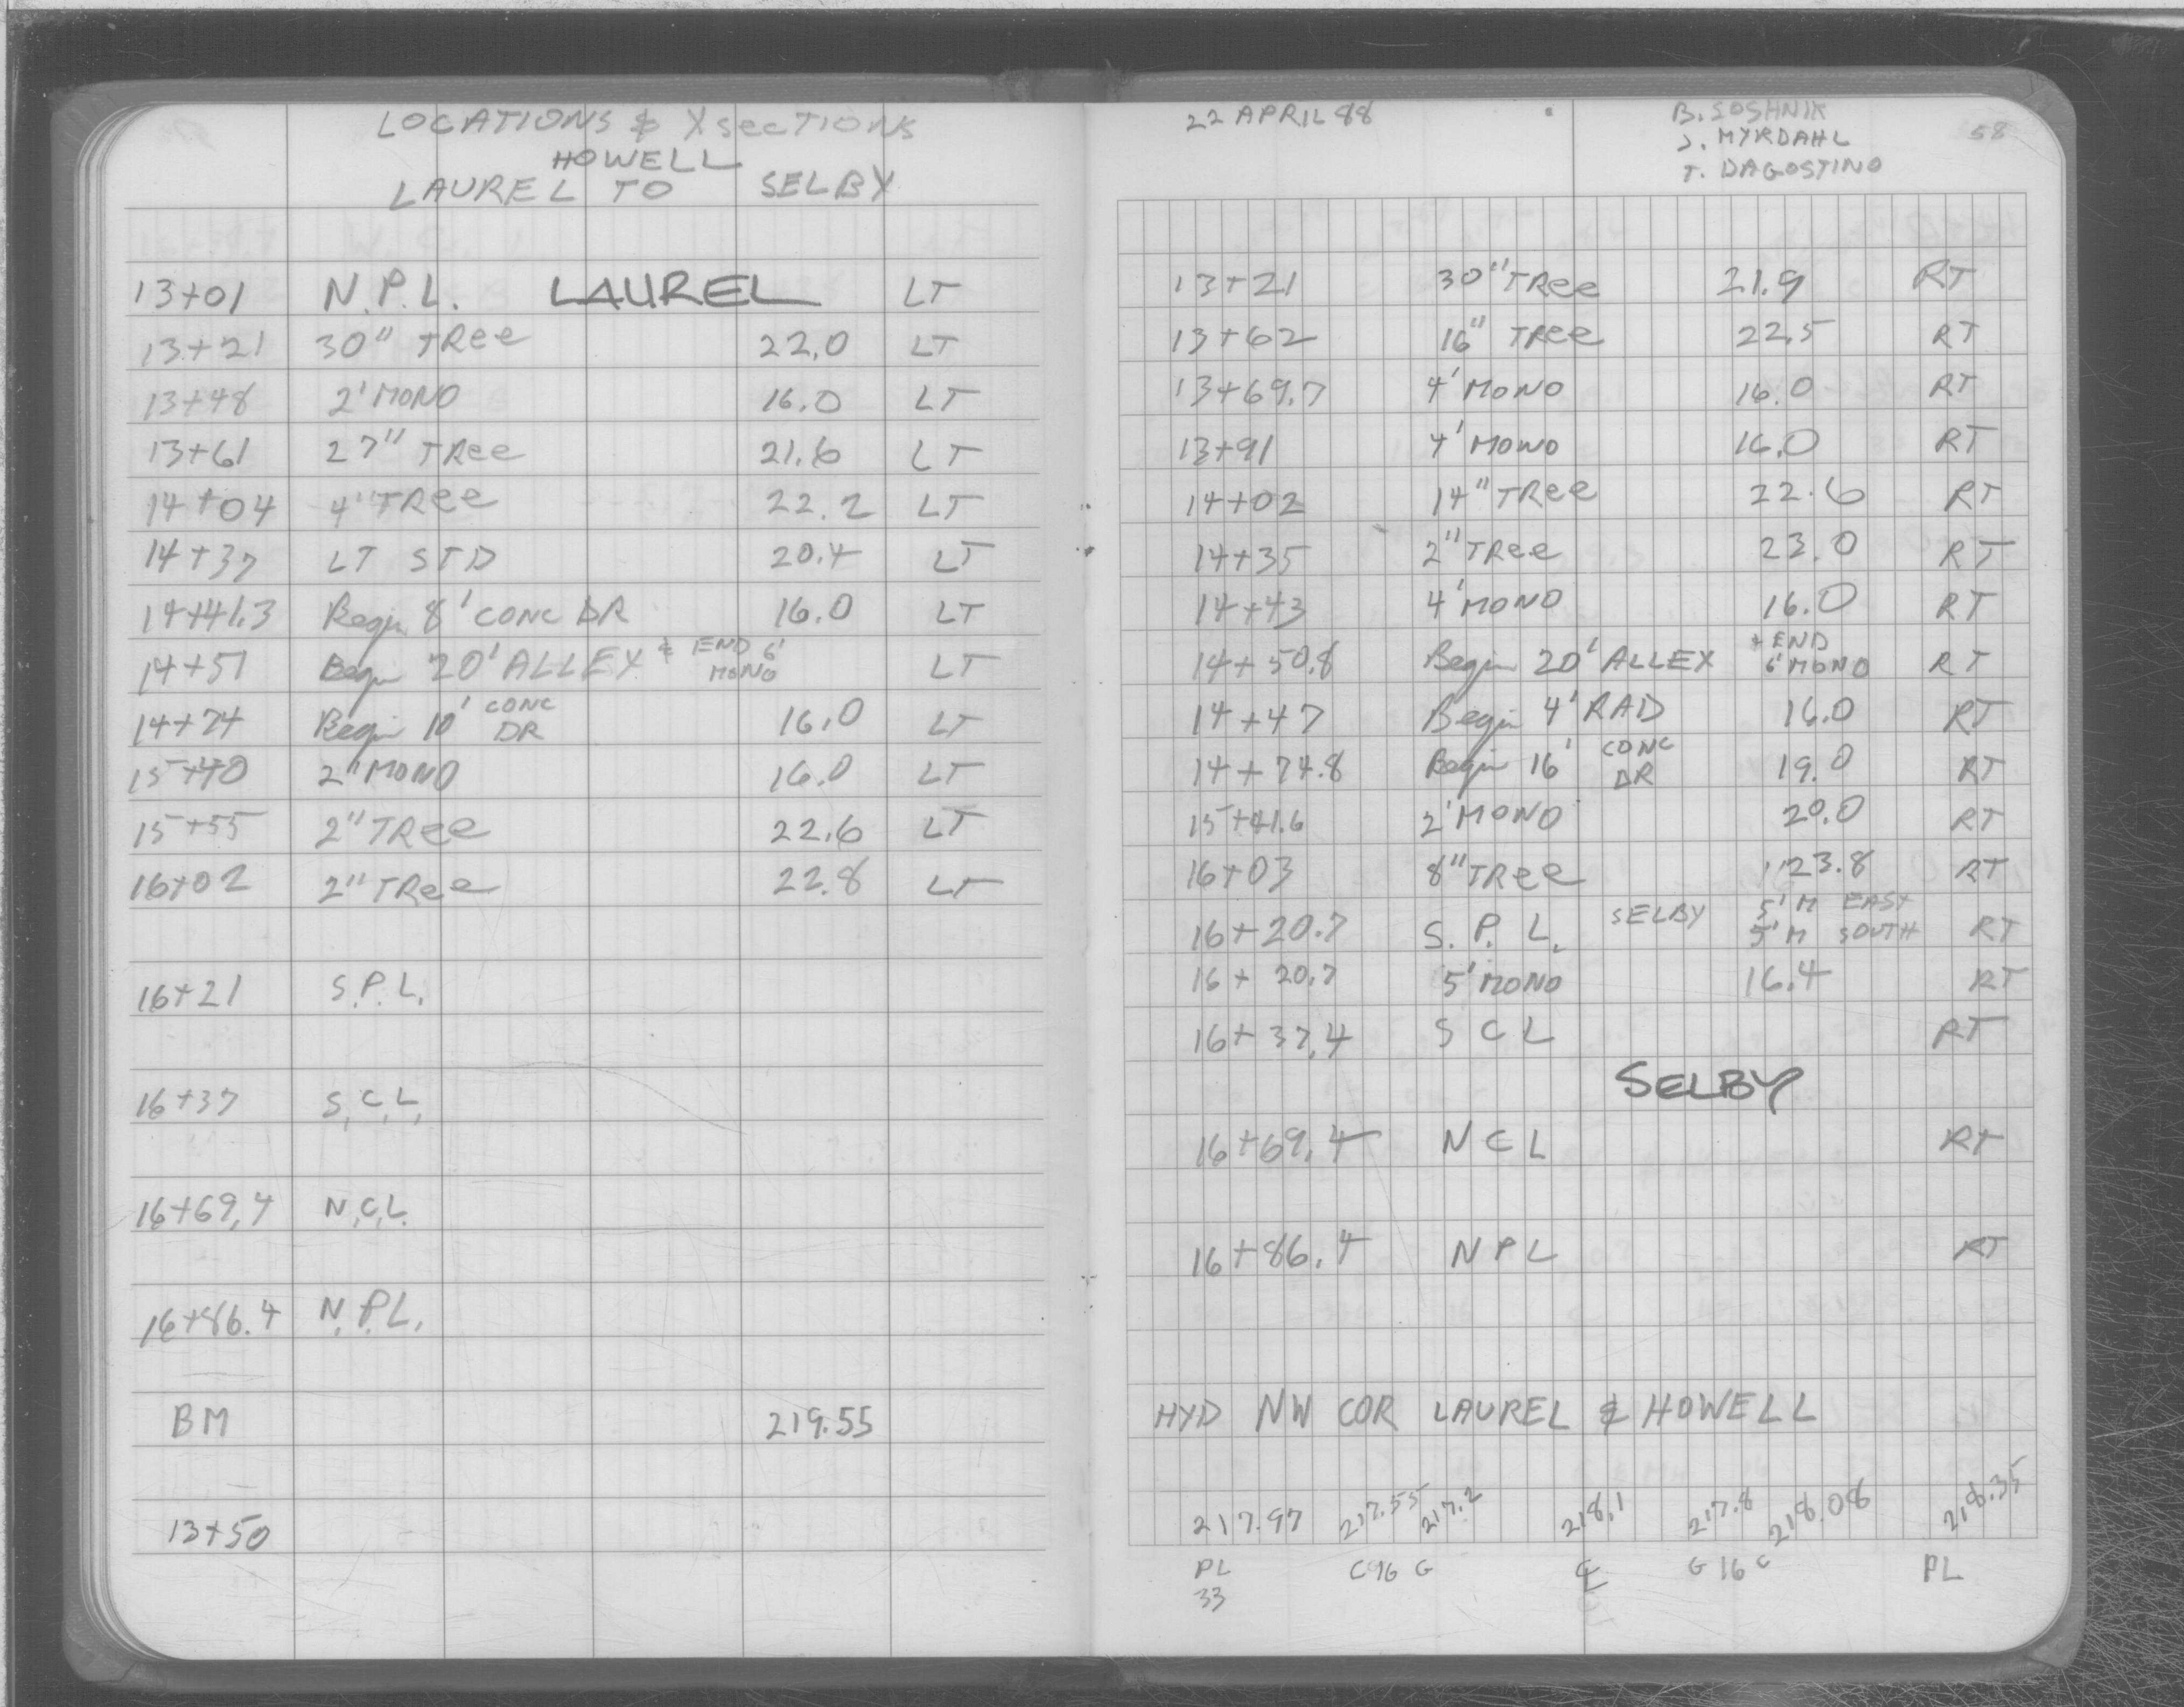 LOCATIONS & XSECTIONS
HOWELL
LAUREL TO SELBY
13+01 N.P.L. LAUREL LT
13+21 30" TREE 22.0 LT
13+48 2' MONO 16.0 LT
13+61 27" TREE 21.6 LT
14+04 4" TREE 22.2 LT
14+37 LT STD 20.4 LT
14+41.3 Begin 8' CONC DR 16.0 LT
14+51 Begin 20' ALLEY & END 6' MONO LT
14+74 Begin 10' CONC DR 16.0 LT
15+40 2" MONO 16.0 LT
15+55 2" TREE 22.6 LT
16+02 2" TREE 22.8 LT
16+21 S.P.L.
16+37 S.C.L.
16+69.4 N.C.L.
16+86.4 N.P.L.
BM 219.55
13+50
22 APRIL 88
B. SOSHNIK
J. MYRDAHL
T. DAGOSTINO
58
13+21 30" TREE 21.9 RT
13+62 16" TREE 22.5 RT
13+69.7 4' MONO 16.0 RT
13+91 4' MONO 16.0 RT
14+02 14" TREE 22.6 RT
14+35 2" TREE 23.0 RT
14+43 4' MONO 16.0 RT
14+50.8 Begin 20' ALLEY & END 6' MONO RT
14+47 Begin 4' RAD 16.0 RT
14+74.8 Begin 16' CONC DR 19.0 RT
15+41.6 2' MONO 20.0 RT
16+03 8" TREE 23.8 RT
16+20.7 S.P.L. SELBY 5' M EAST 5' M SOUTH RT
16+20.7 5' MONO 16.4 RT
16+37.4 S C L RT
SELBY
16+69.4 N C L RT
16+86.4 N P L RT
HYD NW COR LAUREL & HOWELL
217.97 217.55 217.2 218.1 217.8 218.08 218.35
PL C 16 G ℄ G 16 C PL
33